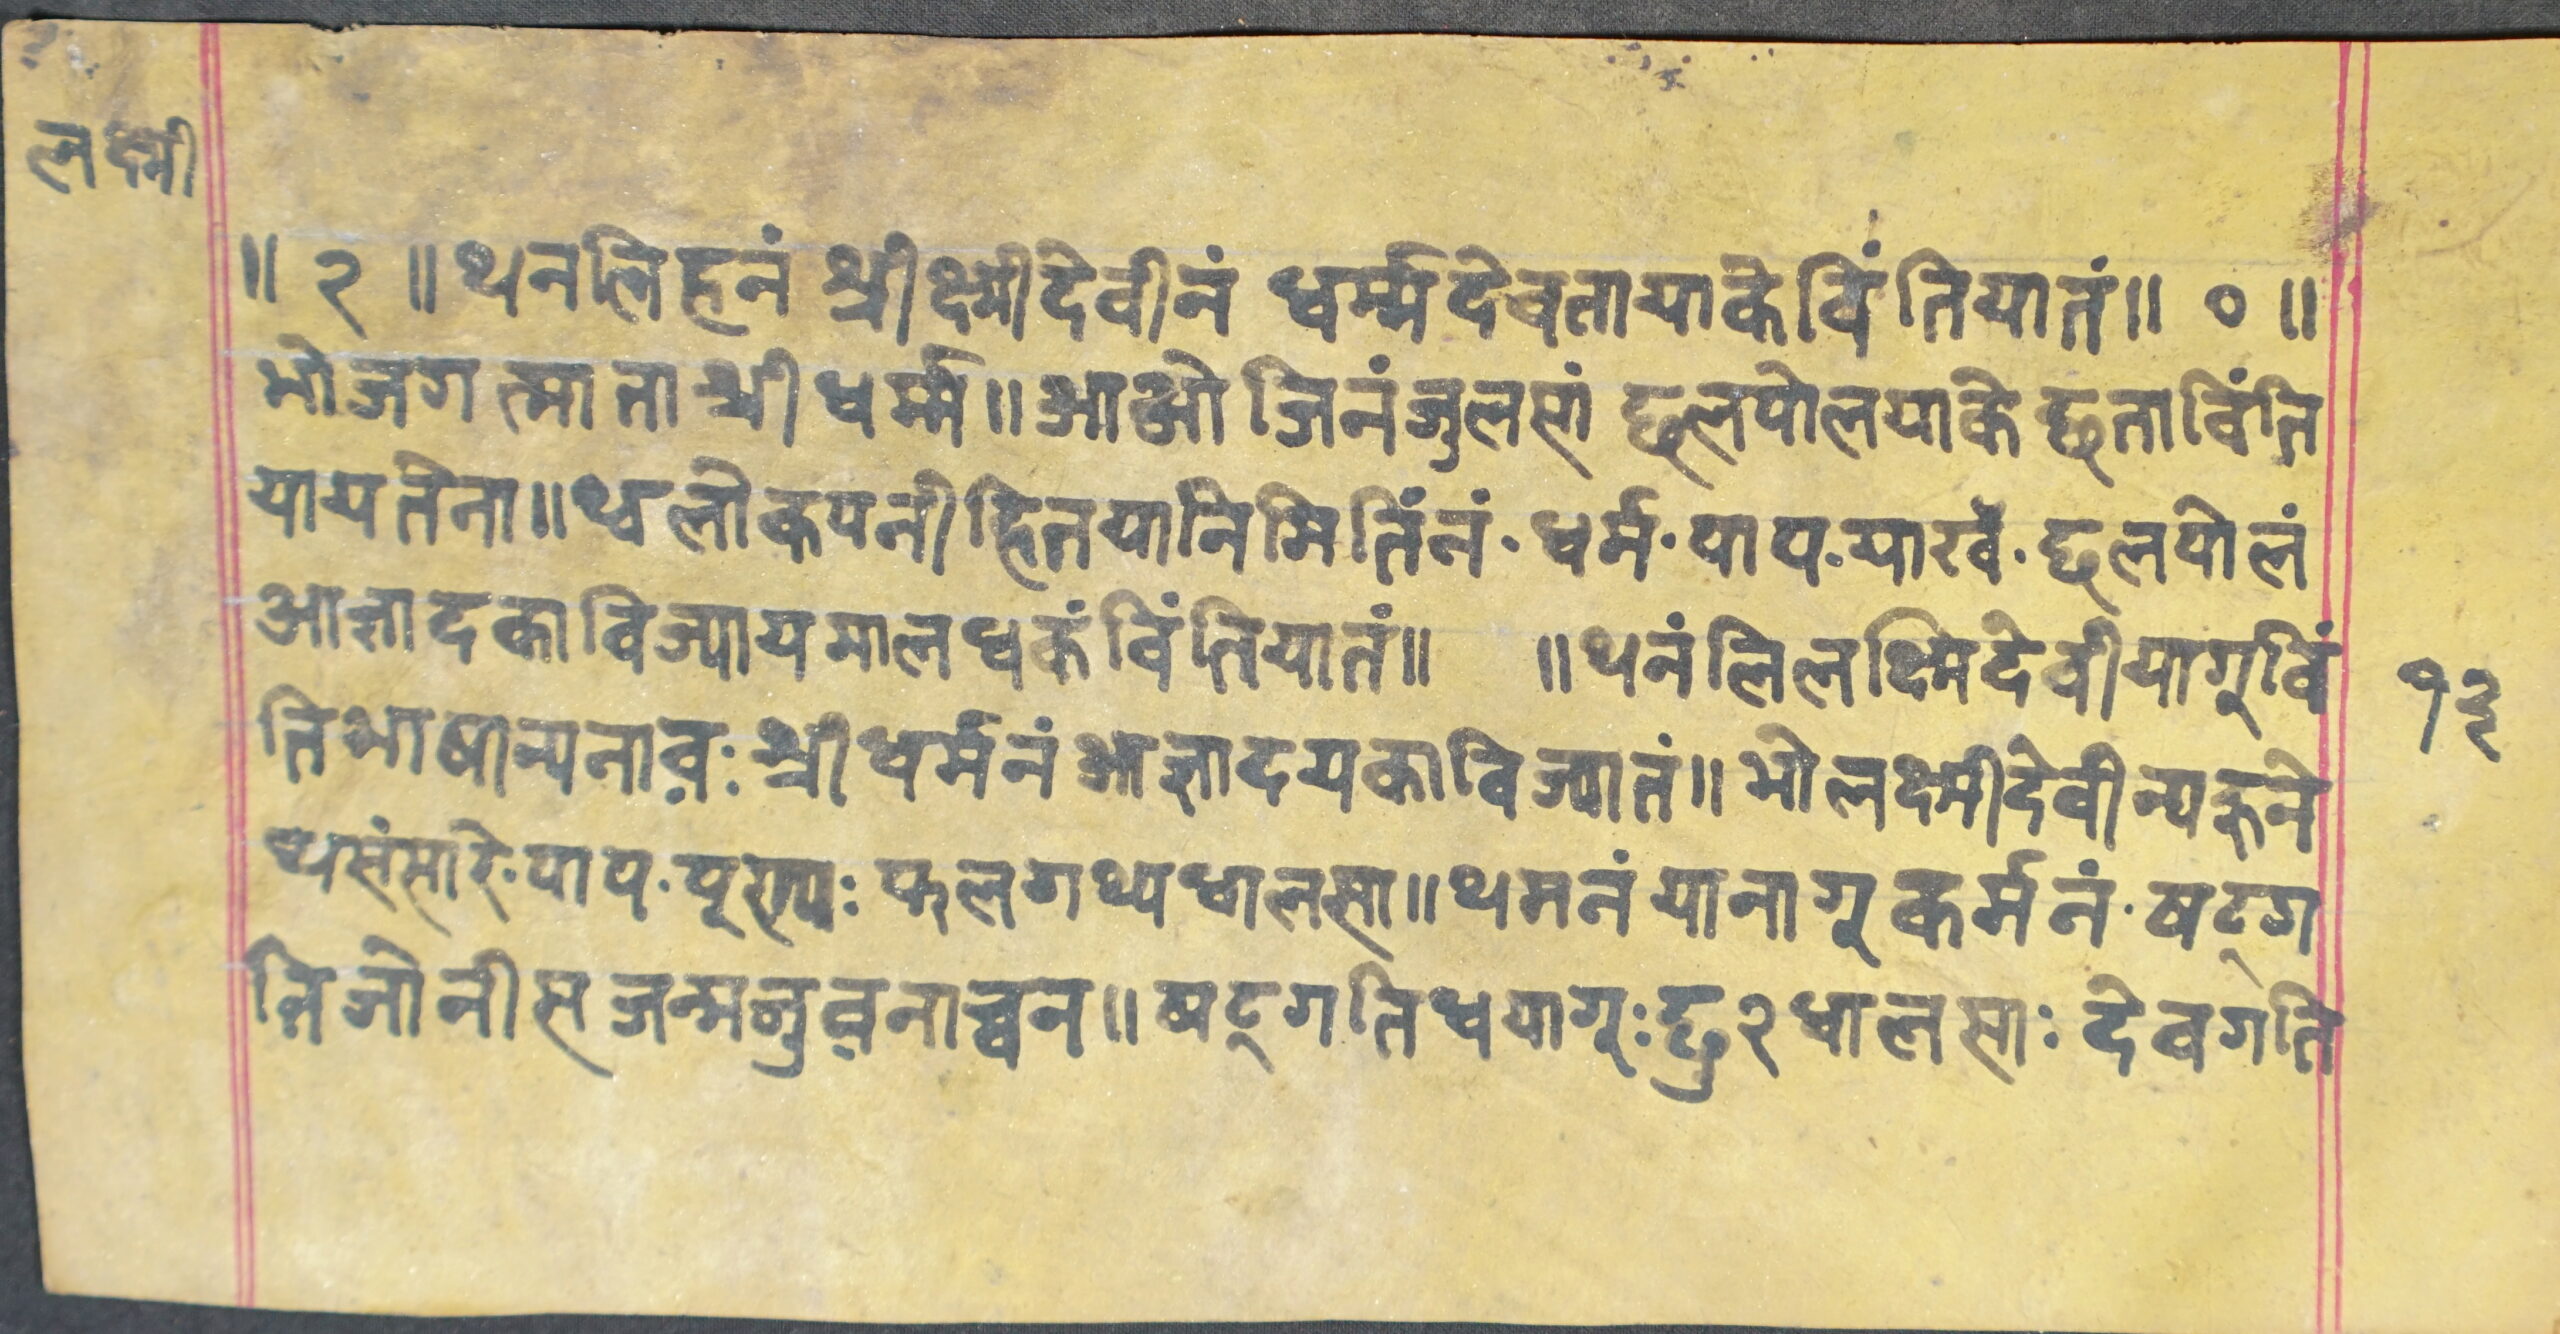 लक्ष्मी
॥ २ ॥ थनलिहनं श्रीक्ष्मीदेवीनं ध्वर्म्मदेवतायाकेविंतियातं॥ ० ॥
भोजगत्माता श्रीधर्म्म॥ आओ जिनंजुलसां छलपोलयाके छताविंति
यायतेना॥ थ्वलोकपनी हितयानिमितिंनं · धर्म · पाप · याखँ · छलपोलं
आज्ञादकाविज्यायमालध्वकंविंतियातं॥ ॥ थनंलिलक्ष्मिदेवीयागूविं
तिभाषान्यनाव़ः श्रीधर्मनं आज्ञादयकाविज्यातं॥ भोलक्ष्मीदेवीन्यहुने
थ्वसंसारे · पाप · पूण्यः फलगथ्यधालसा॥ थमनंयानागूकर्मनं · षट्ग
तिजोनीसजन्मजुव़नाच्वन॥ षट्गतिध्वयागूः छु२धालसाः देवगति
१३